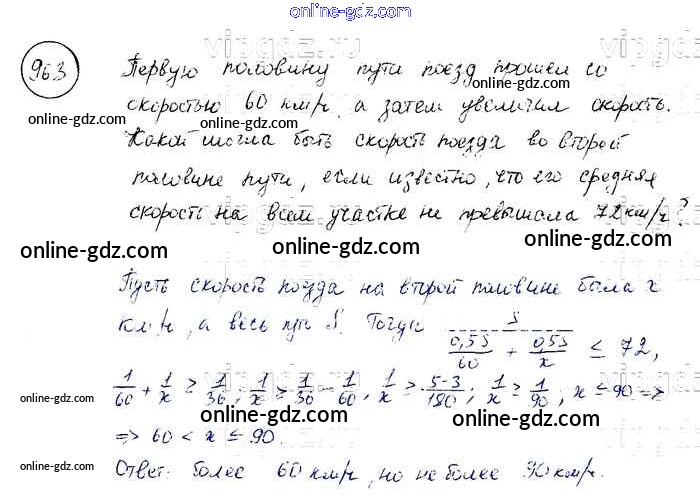 online-gdz.com
vipgdz.ru
963
Первую половину пути поезд прошел со
online-gdz.com
скоростью 60 км/ч, а затем увеличил скорость.
online-gdz.com
online-gdz.com
online-gdz.com
Какой могла быть скорость поезда во второй
половине пути, если известно, что его средняя
online-gdz.com
online-gdz.com
скорость на всем участке не превышала 72 км/ч?
online-gdz.com
online-gdz.com
online-gdz.com
Пусть скорость поезда на второй половине была x
км/ч, а весь путь S. Тогда S / (0,5S/60 + 0,5S/x) ≤ 72,
1/60 + 1/x ≥ 1/36; 1/x ≥ 1/36 - 1/60, 1/x ≥ (5-3)/180; 1/x ≥ 1/90; x ≤ 90 =>
online-gdz.com
online-gdz.com
online-gdz.com
=> 60 < x ≤ 90.
online-gdz.com
online-gdz.com
online-gdz.com
Ответ: более 60 км/ч, но не более 90 км/ч.